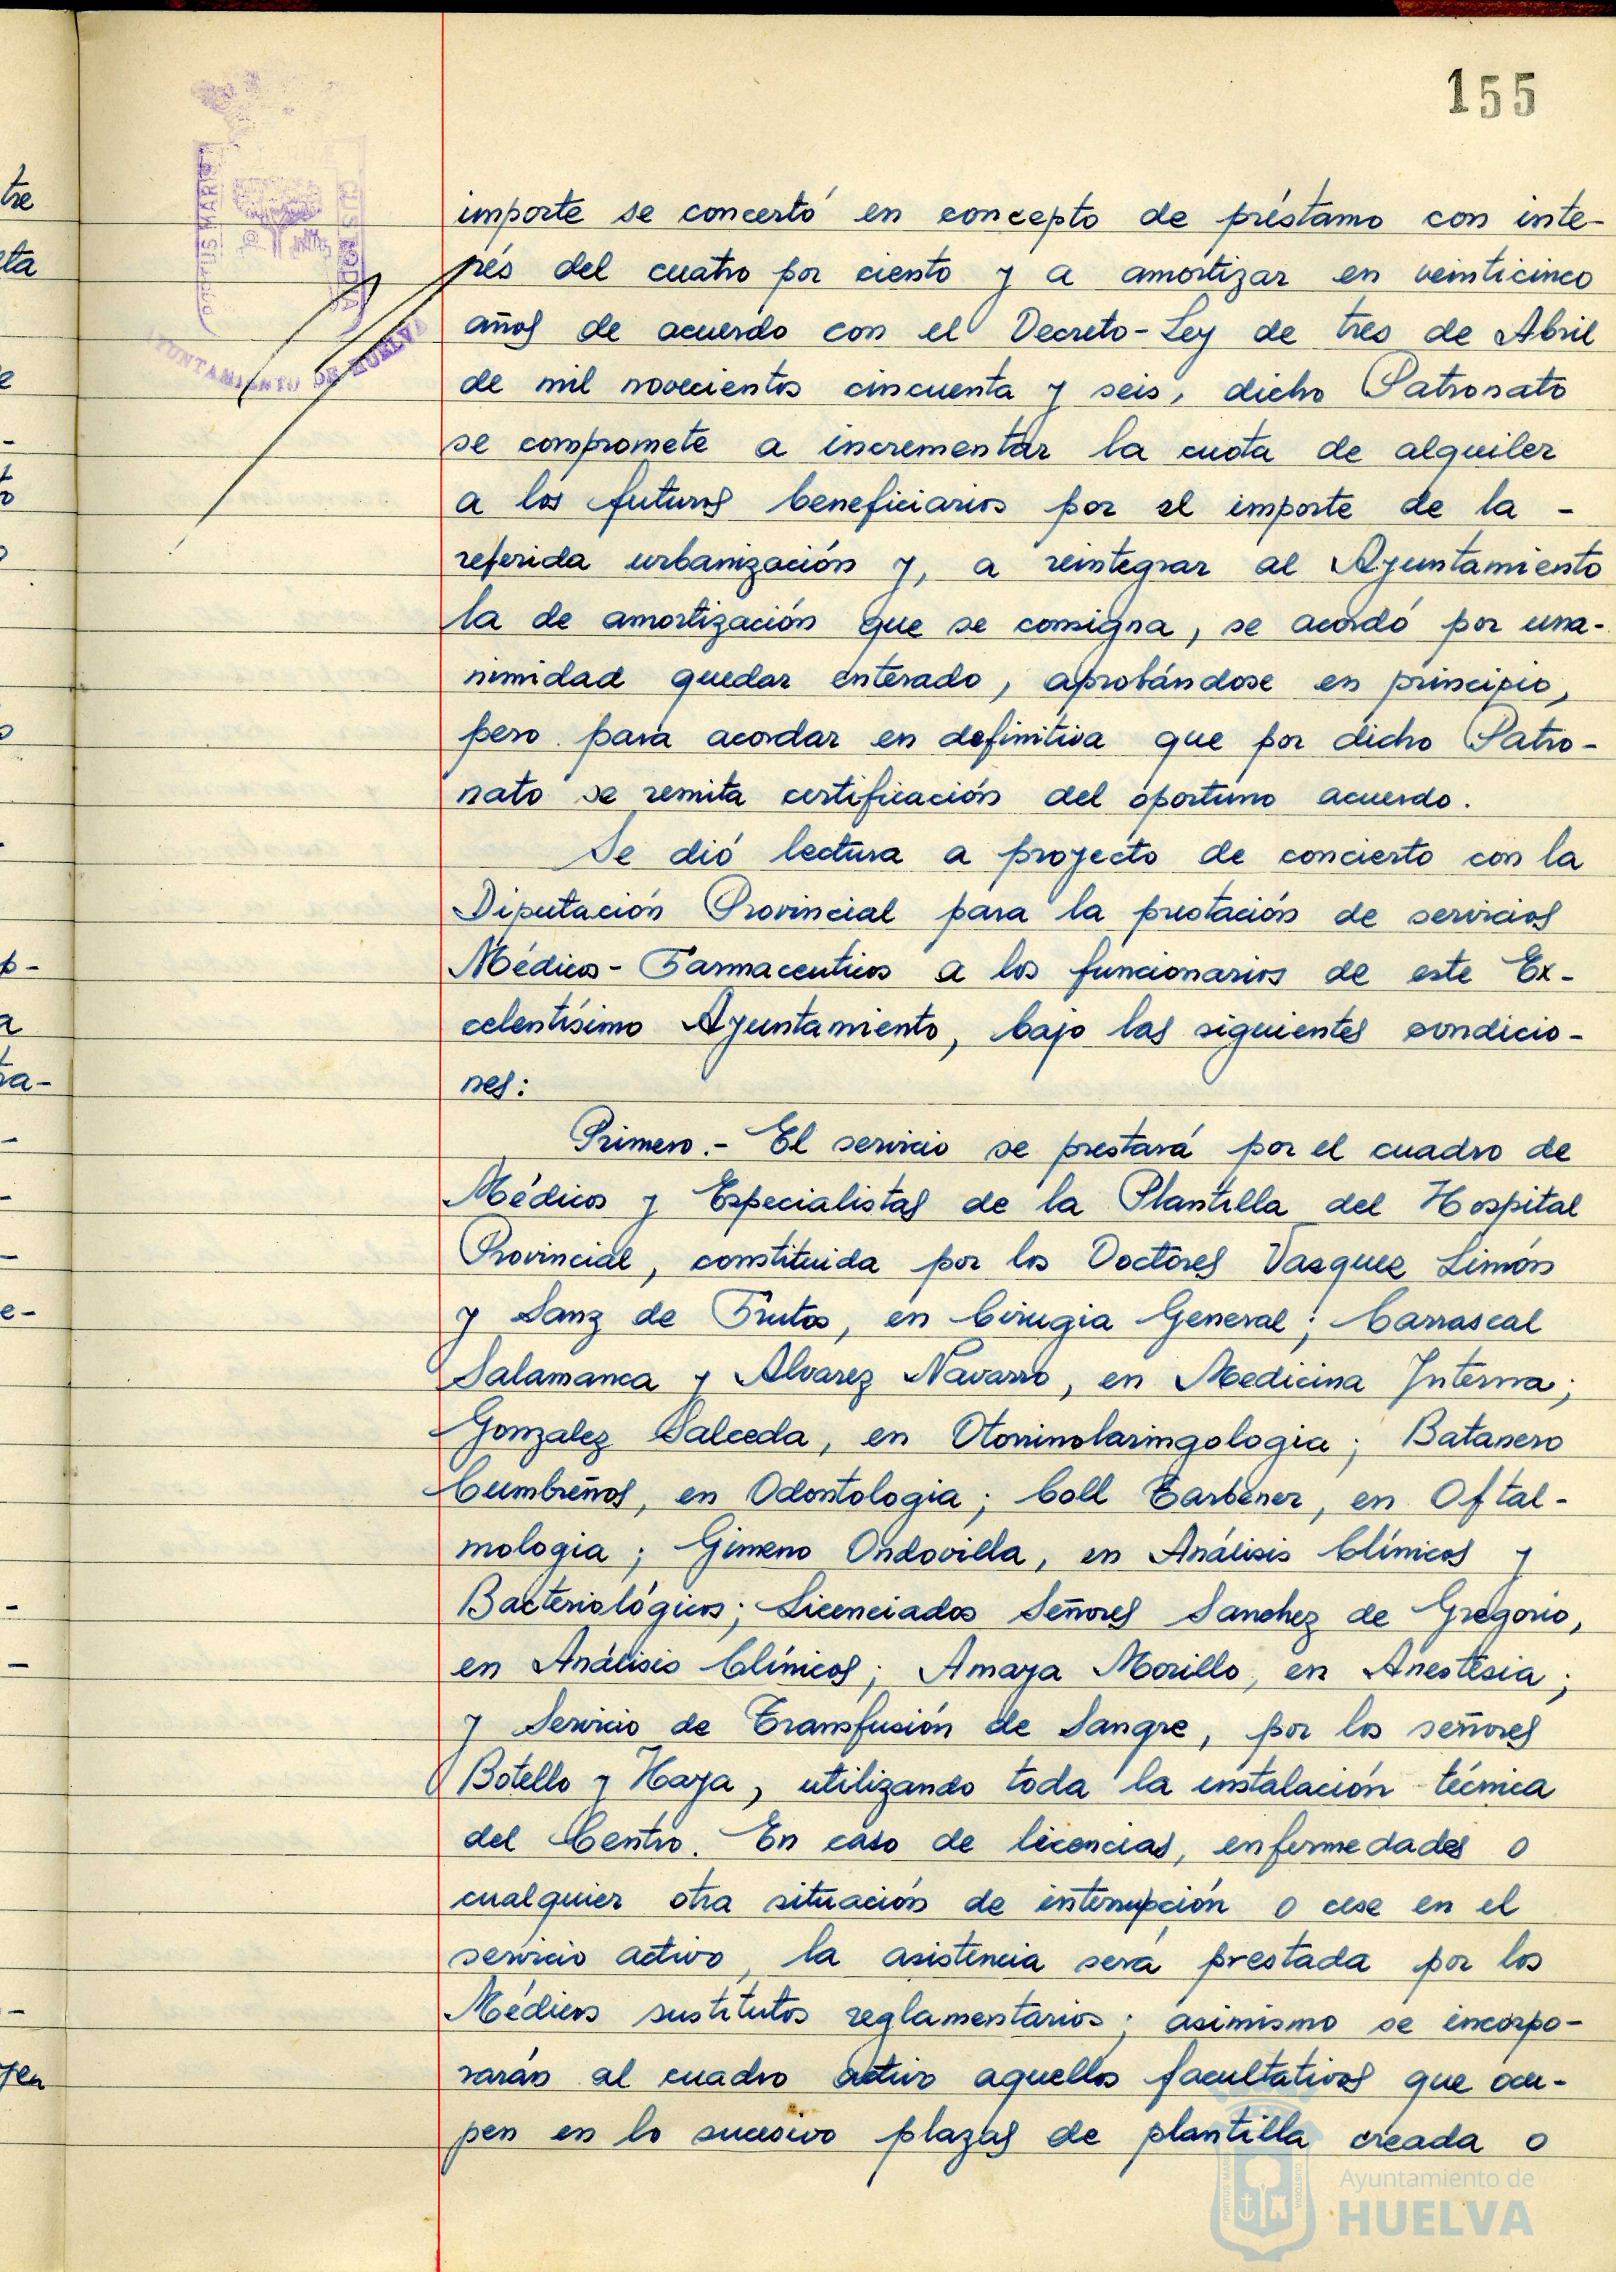 155
importe se concertó en concepto de préstamo con inte-
rés del cuatro por ciento y a amortizar en veinticinco
años de acuerdo con el Decreto-Ley de tres de Abril
de mil novecientos cincuenta y seis, dicho Patronato
se compromete a incrementar la cuota de alquiler
a los futuros beneficiarios por el importe de la -
referida urbanización y, a reintegrar al Ayuntamiento
la de amortización que se consigna, se acordó por una-
nimidad quedar enterado, aprobándose en principio,
pero para acordar en definitiva que por dicho Patro-
nato se remita certificación del oportuno acuerdo.
Se dió lectura a proyecto de concierto con la
Diputación Provincial para la prestación de servicios
Médicos-Farmaceuticos a los funcionarios de este Ex-
celentísimo Ayuntamiento, bajo las siguientes condicio-
nes:
Primero.- El servicio se prestará por el cuadro de
Médicos y Especialistas de la Plantilla del Hospital
Provincial, constituida por los Doctores Vazquez Limón
y Sanz de Frutos, en Cirugia General; Carrascal
Salamanca y Alvarez Navarro, en Medicina Interna;
Gonzalez Salceda, en Otorrinolaringologia; Batanero
Cumbreños, en Odontologia; Coll Tarbener, en Oftal-
mologia; Gimeno Ondovilla, en Análisis Clínicos y
Bacteriológicos; Licenciados Señores Sanchez de Gregorio,
en Análisis Clínicos; Amaya Morillo, en Anestesia;
y Servicio de Transfusión de Sangre, por los señores
Botello y Haya, utilizando toda la instalación técnica
del Centro. En caso de licencias, enfermedades o
cualquier otra situación de interrupción o cese en el
servicio activo, la asistencia será prestada por los
Médicos sustitutos reglamentarios; asimismo se incorpo-
rarán al cuadro activo aquellos facultativos que ocu-
pen en lo sucesivo plazas de plantilla creada o
PORTUS MARIS
CUSTODIA
AYUNTAMIENTO DE HUELVA
Ayuntamiento de
HUELVA